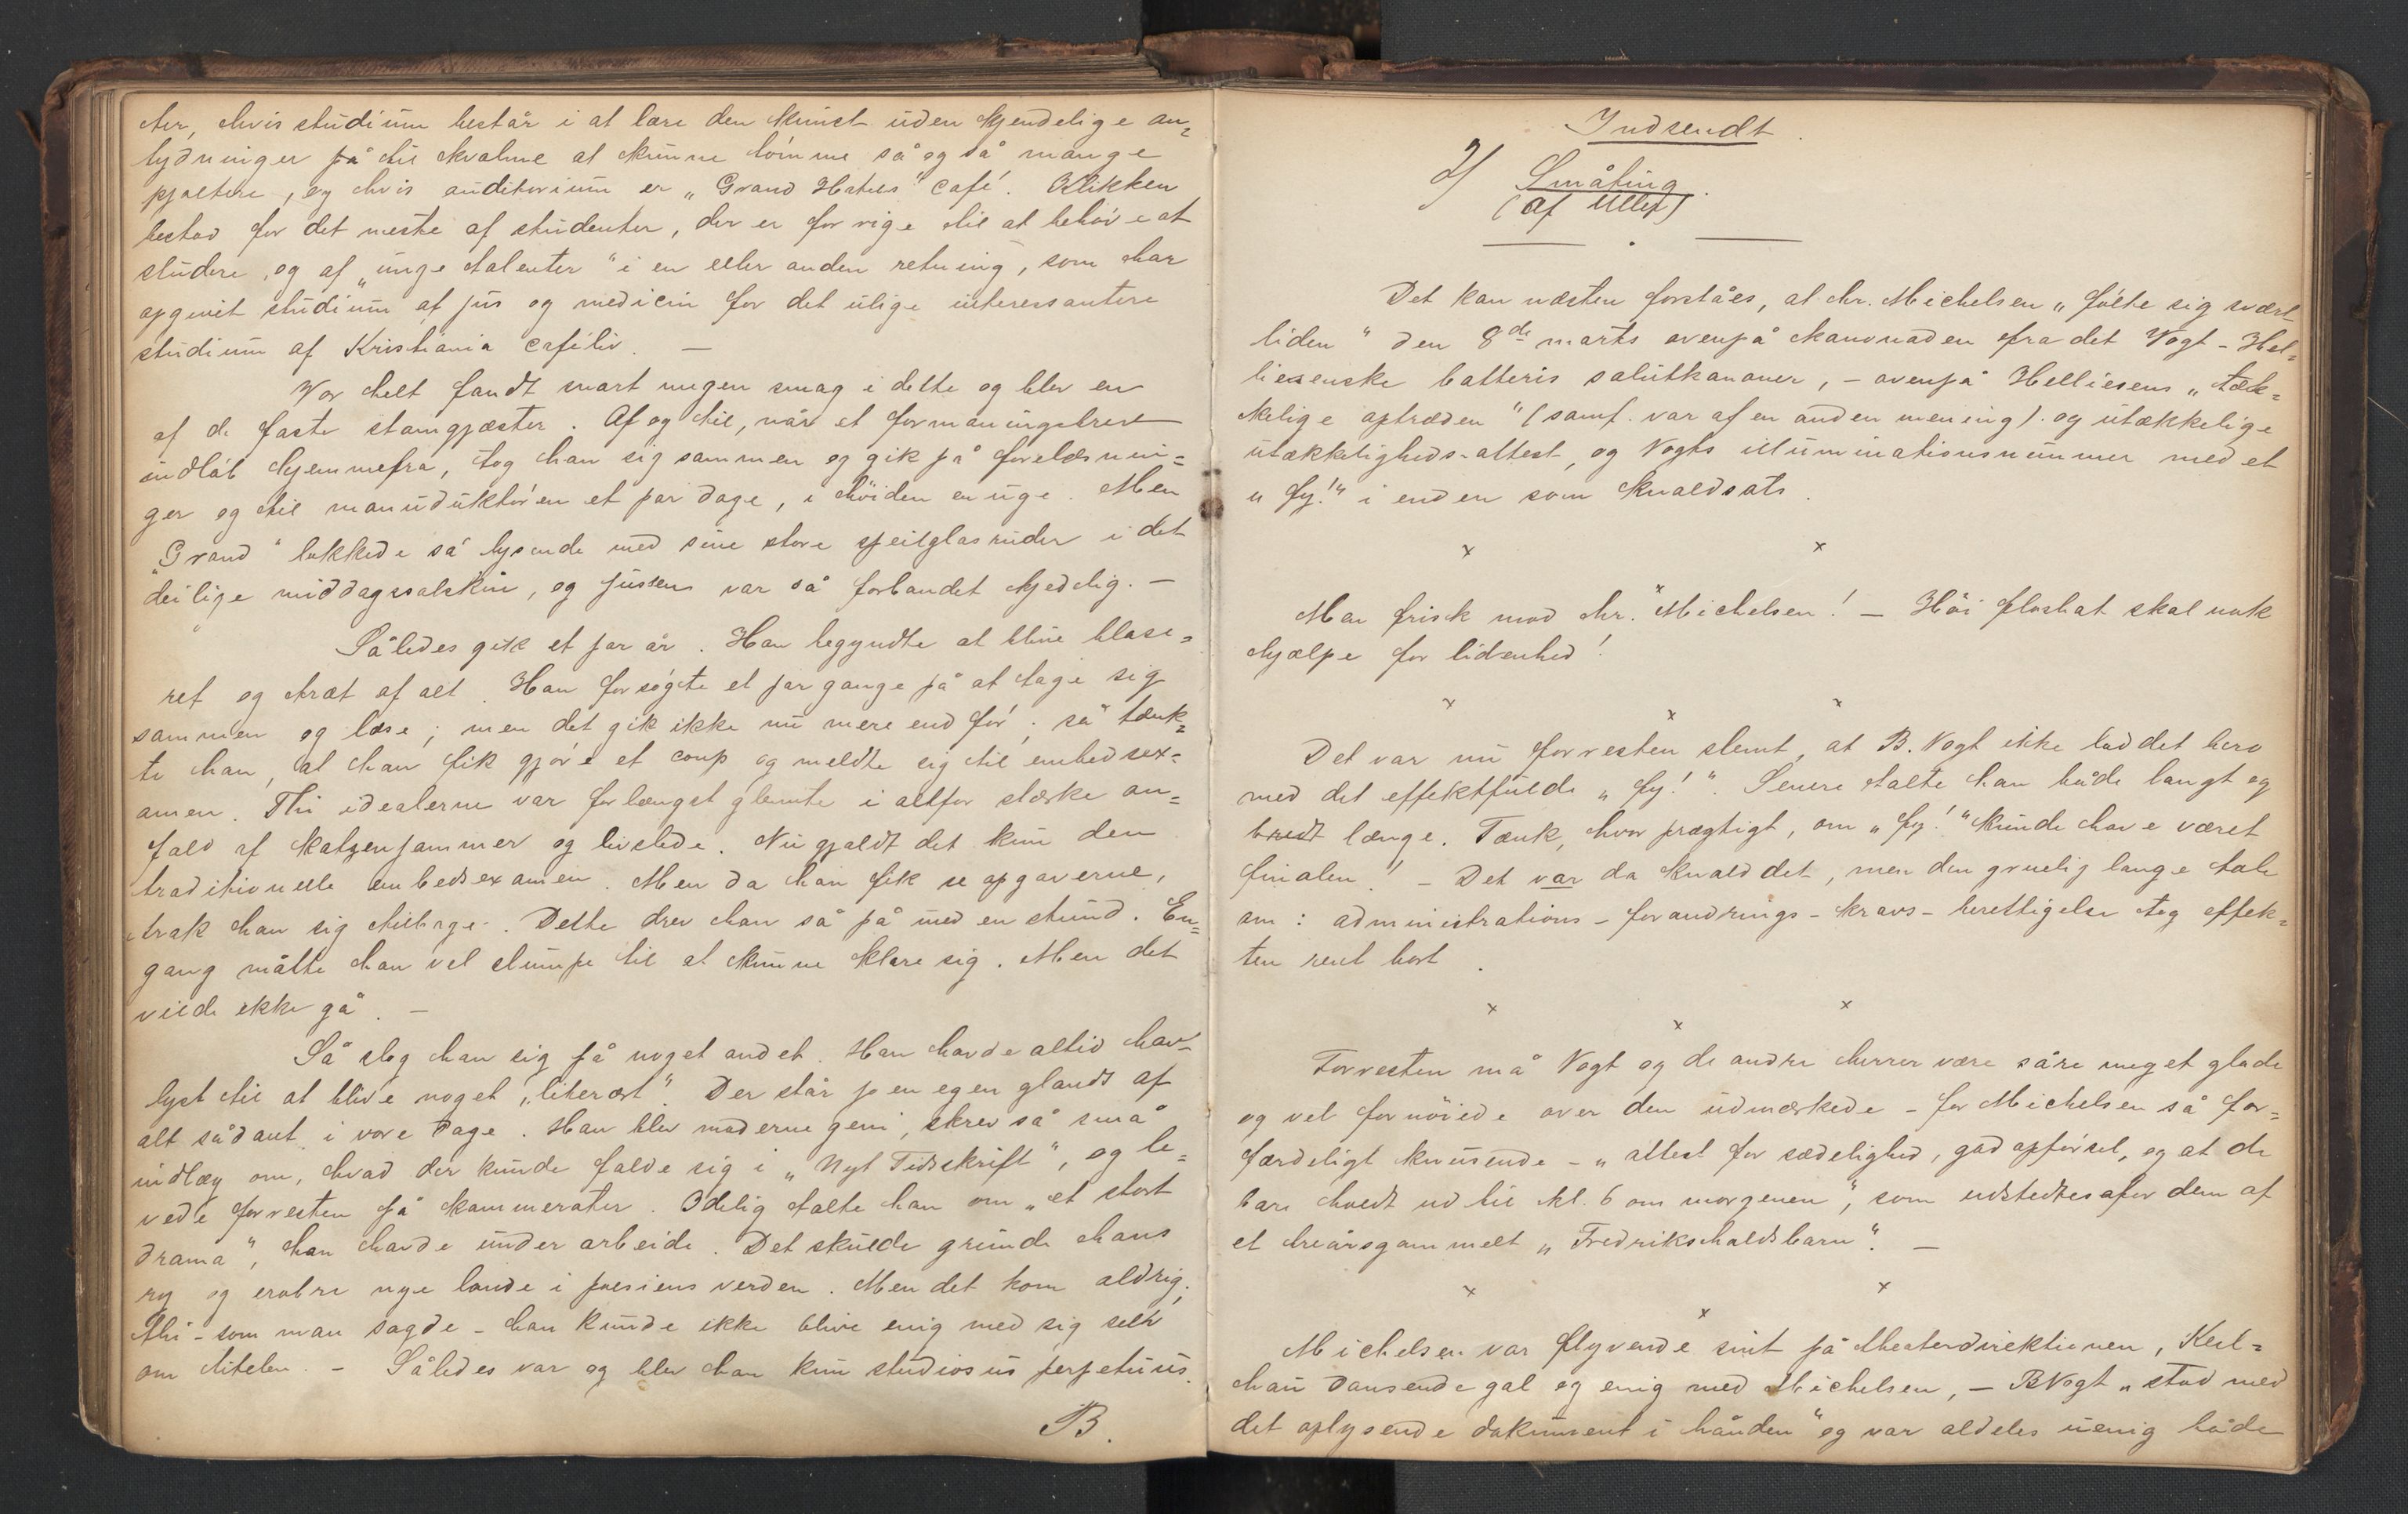 ter, hvis studium består i at lære den kunst uden kjendelige an=
tydninger på til kvalme at kunne tömme så og så mange
pjoltere, og hvis auditorium er „Grand Hotels” café. Klikken
bestod for det meste af studenter, der er for rige til at behöve at
studere, og af „unge talenter” i en eller anden retning, som har
opgivet studium af jus og medicin for det ulige interessantere
studium af Kristiania caféliv. —
Vor helt fandt snart megen smag i dette og blev en
af de faste stamgjæster. Af og til, når et formaningsbrev
indlöb hjemmefra, tog han sig sammen og gik på forelæsnin=
ger og til manuduktören et par dage, i höiden en uge. Men
„Grand” lokkede så lysende med sine store speilglasruder i det
deilige middagssolskin, og jussen var så forbandet kjedelig. —
Således gik et par år. Han begyndte at blive blase=
ret og træt af alt. Han forsögte et par gange på at tage sig
sammen og læse; men det gik ikke nu mere end för; så tænk=
te han, at han fik gjöre et coup og meldte sig til embedsex=
amen. Thi idealerne var forlængst glemte i altfor stærke an=
fald af katzenjammer og livslede. Nu gjaldt det kun den
traditionelle embedsexamen. Men da han fik se opgaverne,
trak han sig tilbage. Dette drev han så på med en stund. En=
gang måtte han vel slumpe til at kunne klare sig. Men det
vilde ikke gå. —
Så slog han sig på noget andet. Han havde altid hav
lyst til at blive noget „literært”. Der står jo en egen glands af
alt sådant i vore dage. Han blev moderne geni, skrev så små
indlæg om, hvad der kunde falde sig i „Nyt Tidsskrift”, og le=
vede forresten på kammerater. Idelig talte han om „et stort
drama”, han havde under arbeide. Det skulde grunde hans
ry og erobre nye lande i poesiens verden. Men det kom aldrig;
thi - som man sagde - han kunde ikke blive enig med sig selv
om titelen. — Således var og blev han kun studiosus perpetuus.
B.
Indsendt.
2) Småting.
(af Ullef)
Det kan næsten forståes, at hr. Michelsen „fölte sig svært
liden” den 8de marts ovenpå kanonaden fra det Vogt-Hel=
liesenske batteris salutkanoner, — ovenpå Helliesens „tæk=
kelige optræden” (samf. var af en anden mening). og utækkelige
utækkeligheds-attest, og Vogts illuminationsnummer med et
„fy!” i enden som knaldsats.
x x x
Man frisk mod hr. Michelsen! — Höi floshat skal nok
hjælpe for lidenhed!
x x x
Det var nu forresten slemt, at B. Vogt ikke lod det bero
med det effektfulde „fy!”. Senere talte han både langt og
bredt længe. Tænk, hvor prægtigt, om „fy!” kunde have været
finalen! — Det var da knaldet, men den gruelig lange tale
om: administrations-forandrings-kravs-berettigelse tog effek=
ten rent bort.
x x x
Forresten må Vogt og de andre herrer være såre meget glade
og vel fornöiede over den udmærkede - for Michelsen så for=
færdeligt knusende - „attest for sædelighed, god opförsel, og at de
bare holdt ud til kl. 6 om morgenen”, som udstedtes for dem af
et treårsgammelt „Fredrikshaldsbarn”. —
x x x
Michelsen var flyvende sint på theaterdirektionen, Keil=
hau dansende gal og enig med Michelsen, — B Vogt „stod med
det oplysende dokument i hånden” og var aldeles uenig både